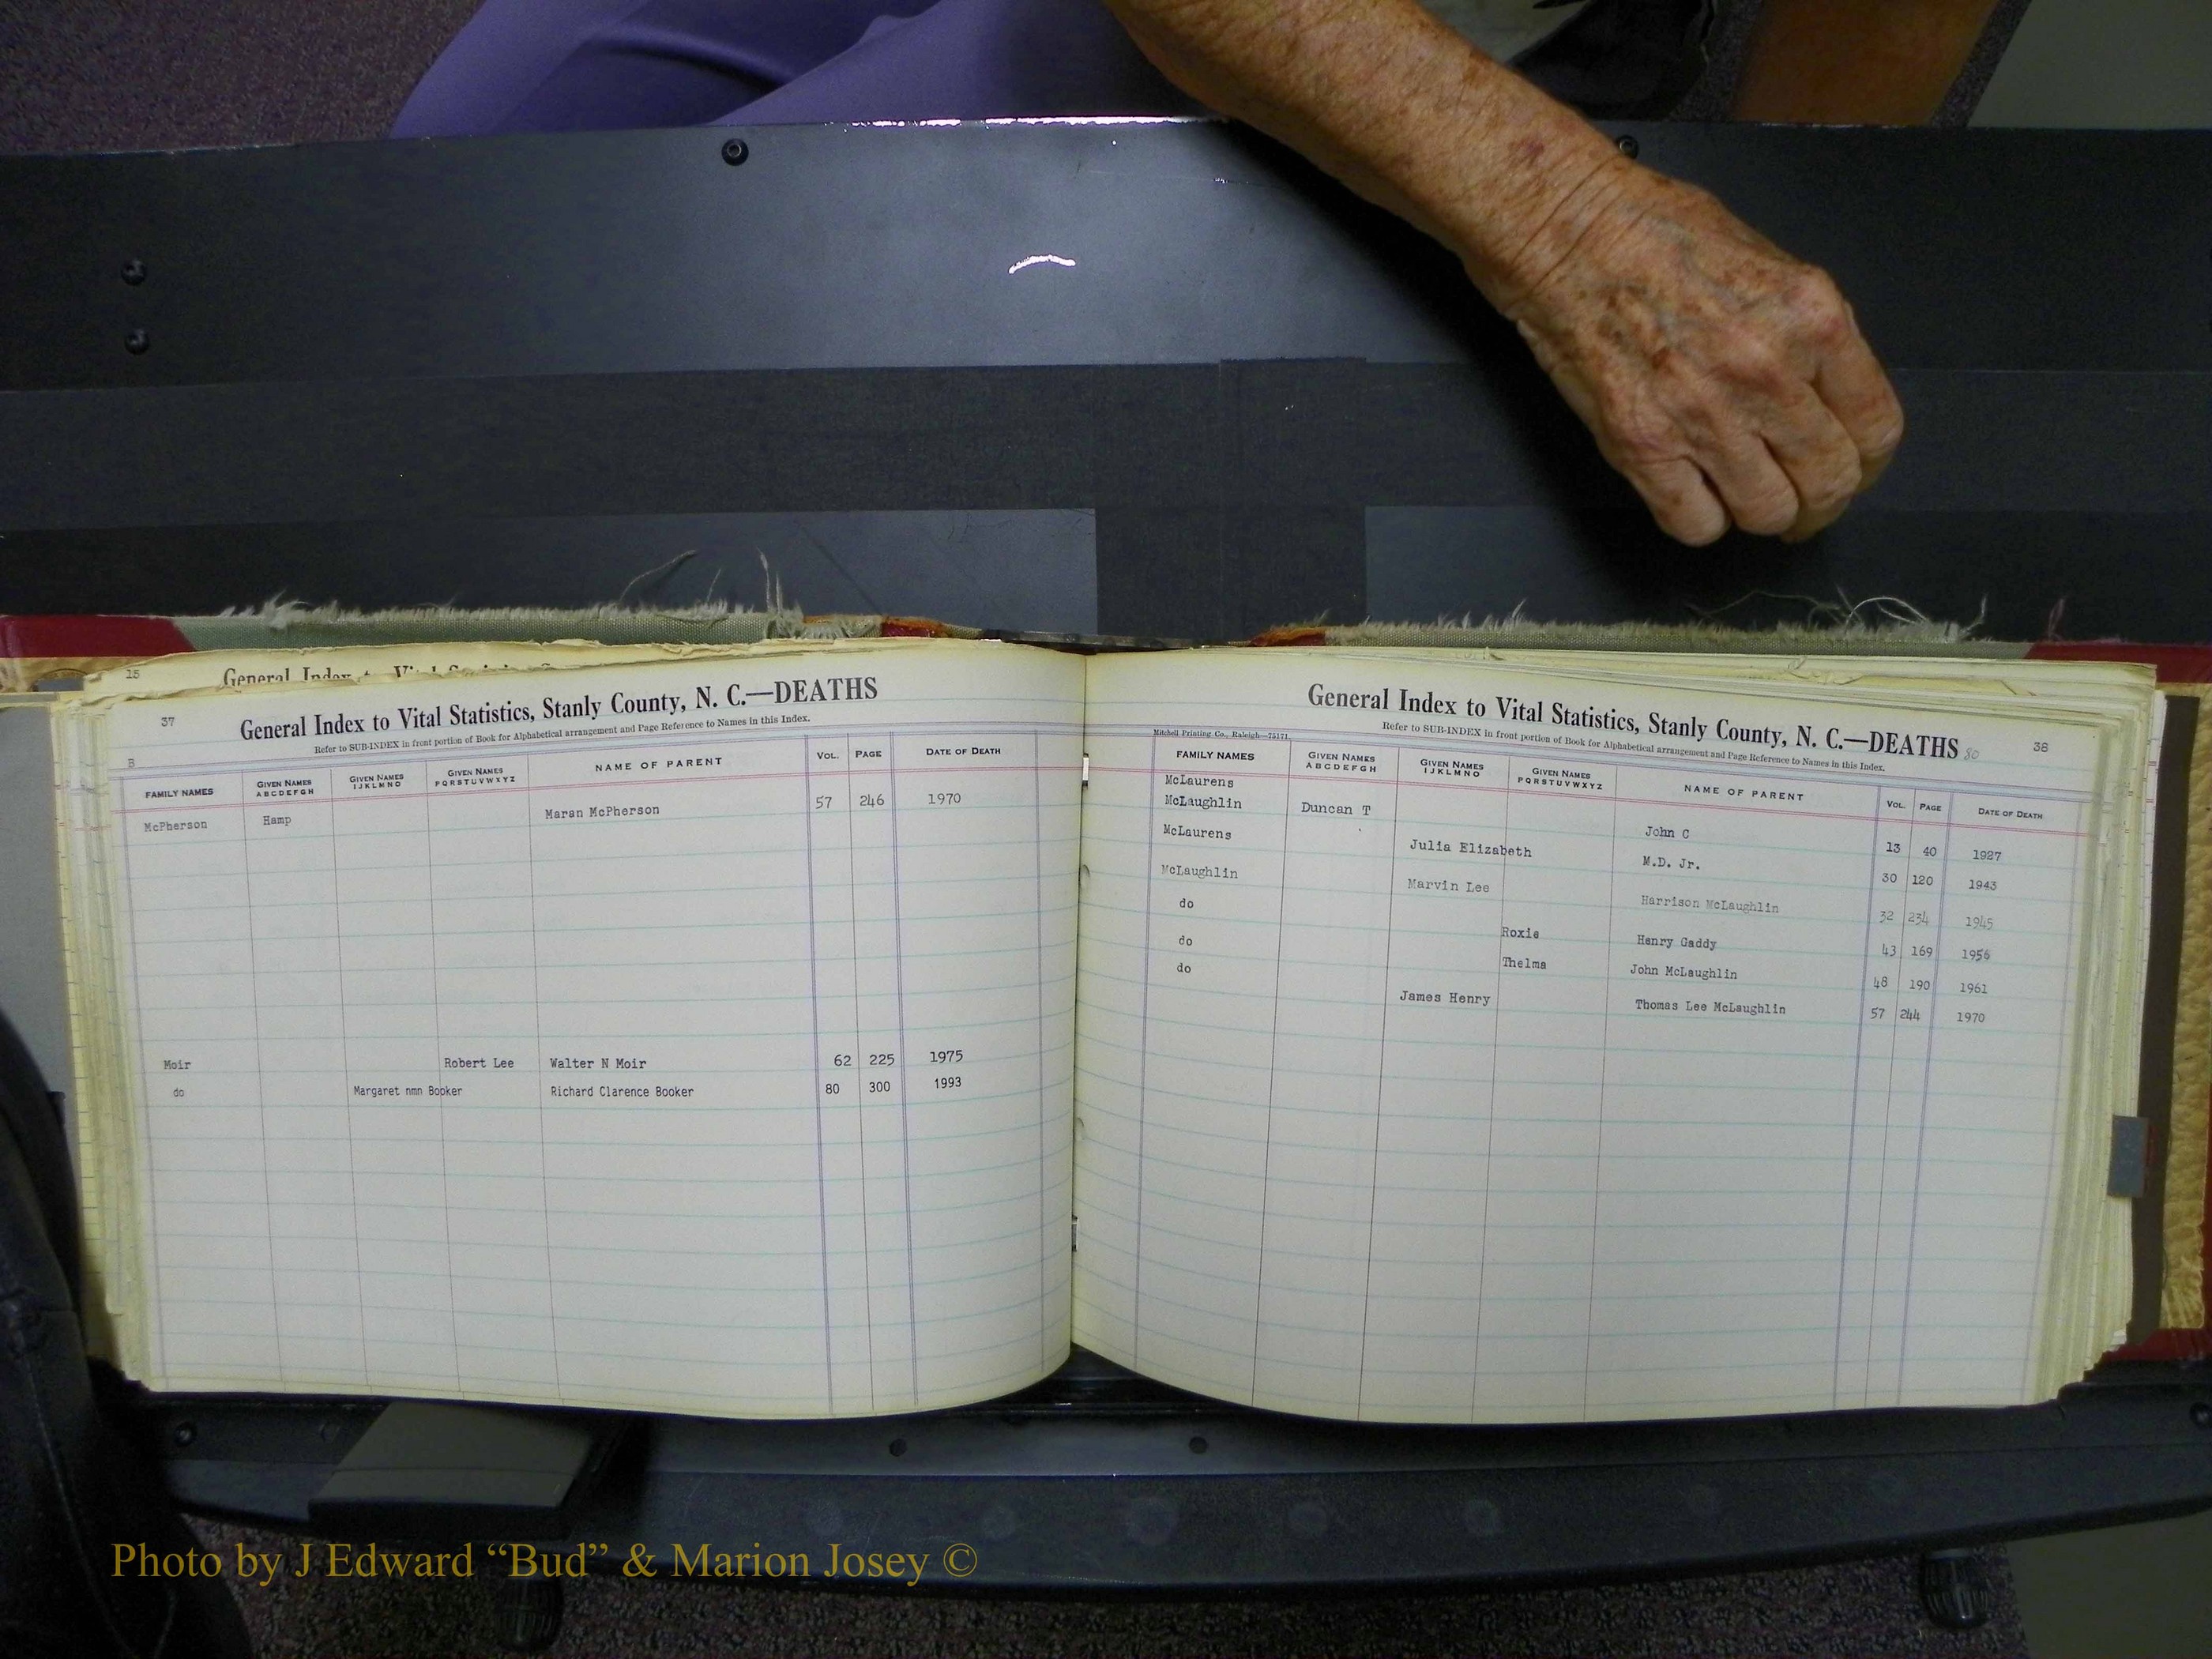 15
General Index to Vital Statistics
37
General Index to Vital Statistics, Stanly County, N. C.—DEATHS
Refer to SUB-INDEX in front portion of Book for Alphabetical arrangement and Page Reference to Names in this Index.
B
FAMILY NAMES GIVEN NAMES ABCDEFGH GIVEN NAMES IJKLMNO GIVEN NAMES PQRSTUVWXYZ NAME OF PARENT VOL. PAGE DATE OF DEATH
McPherson Hamp Maran McPherson 57 246 1970
Moir Robert Lee Walter N Moir 62 225 1975
do Margaret nmn Booker Richard Clarence Booker 80 300 1993
General Index to Vital Statistics, Stanly County, N. C.—DEATHS 80
38
Refer to SUB-INDEX in front portion of Book for Alphabetical arrangement and Page Reference to Names in this Index.
Mitchell Printing Co., Raleigh—75171
FAMILY NAMES GIVEN NAMES ABCDEFGH GIVEN NAMES IJKLMNO GIVEN NAMES PQRSTUVWXYZ NAME OF PARENT VOL. PAGE DATE OF DEATH
McLaurens
McLaughlin Duncan T John C 13 40 1927
McLaurens Julia Elizabeth M.D. Jr. 30 120 1943
McLaughlin Marvin Lee Harrison McLaughlin 32 234 1945
do Roxie Henry Gaddy 43 169 1956
do Thelma John McLaughlin 48 190 1961
do James Henry Thomas Lee McLaughlin 57 244 1970
Photo by J Edward “Bud” & Marion Josey ©